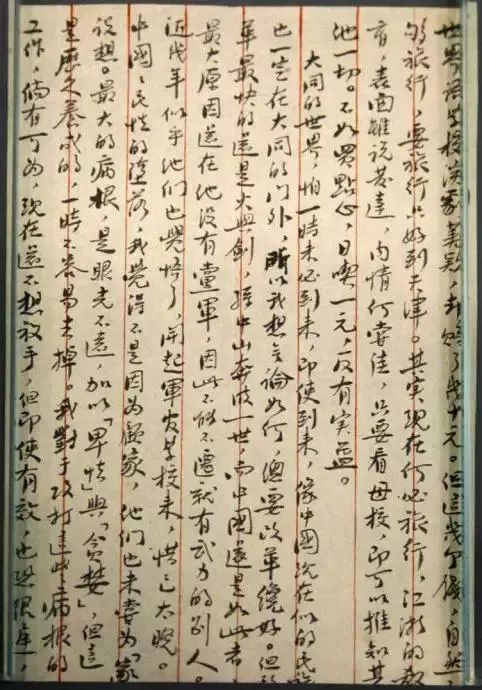 世界语学校 却 了幾十元。但這幾个錢,自然
够旅行,要旅行只好到天津。其实现在何必旅行,江浙的教
育,表面雖说发達,内情何尝佳,只要看母校,即可以推知其
他一切。不如買點心,日喫一元,反有实益。
大同的世界,怕一時未必到来,即使到来,像中國现在似的民族
也一定在大同的門外,所以我想無論如何,總要改革纔好。但改
革最快的還是火與劍,孫中山奔波一世,而中國還是如此者
最大原因還在他没有黨軍,因此不能不遷就有武力的别人。
近幾年似乎他们也覺悟了,開起軍官学校来,惜已太晚。
中國國民性的墮落,我覺得不是因为顧家,他们也未尝为「家
设想。最大的病根,是眼光不遠,加以「卑怯」與「貪婪」,但這
是歷久養成的,一時不容易去掉。我對于攻打這些病根的
工作,倘有可为,现在還不想放手,但即使有效,也恐很遲,